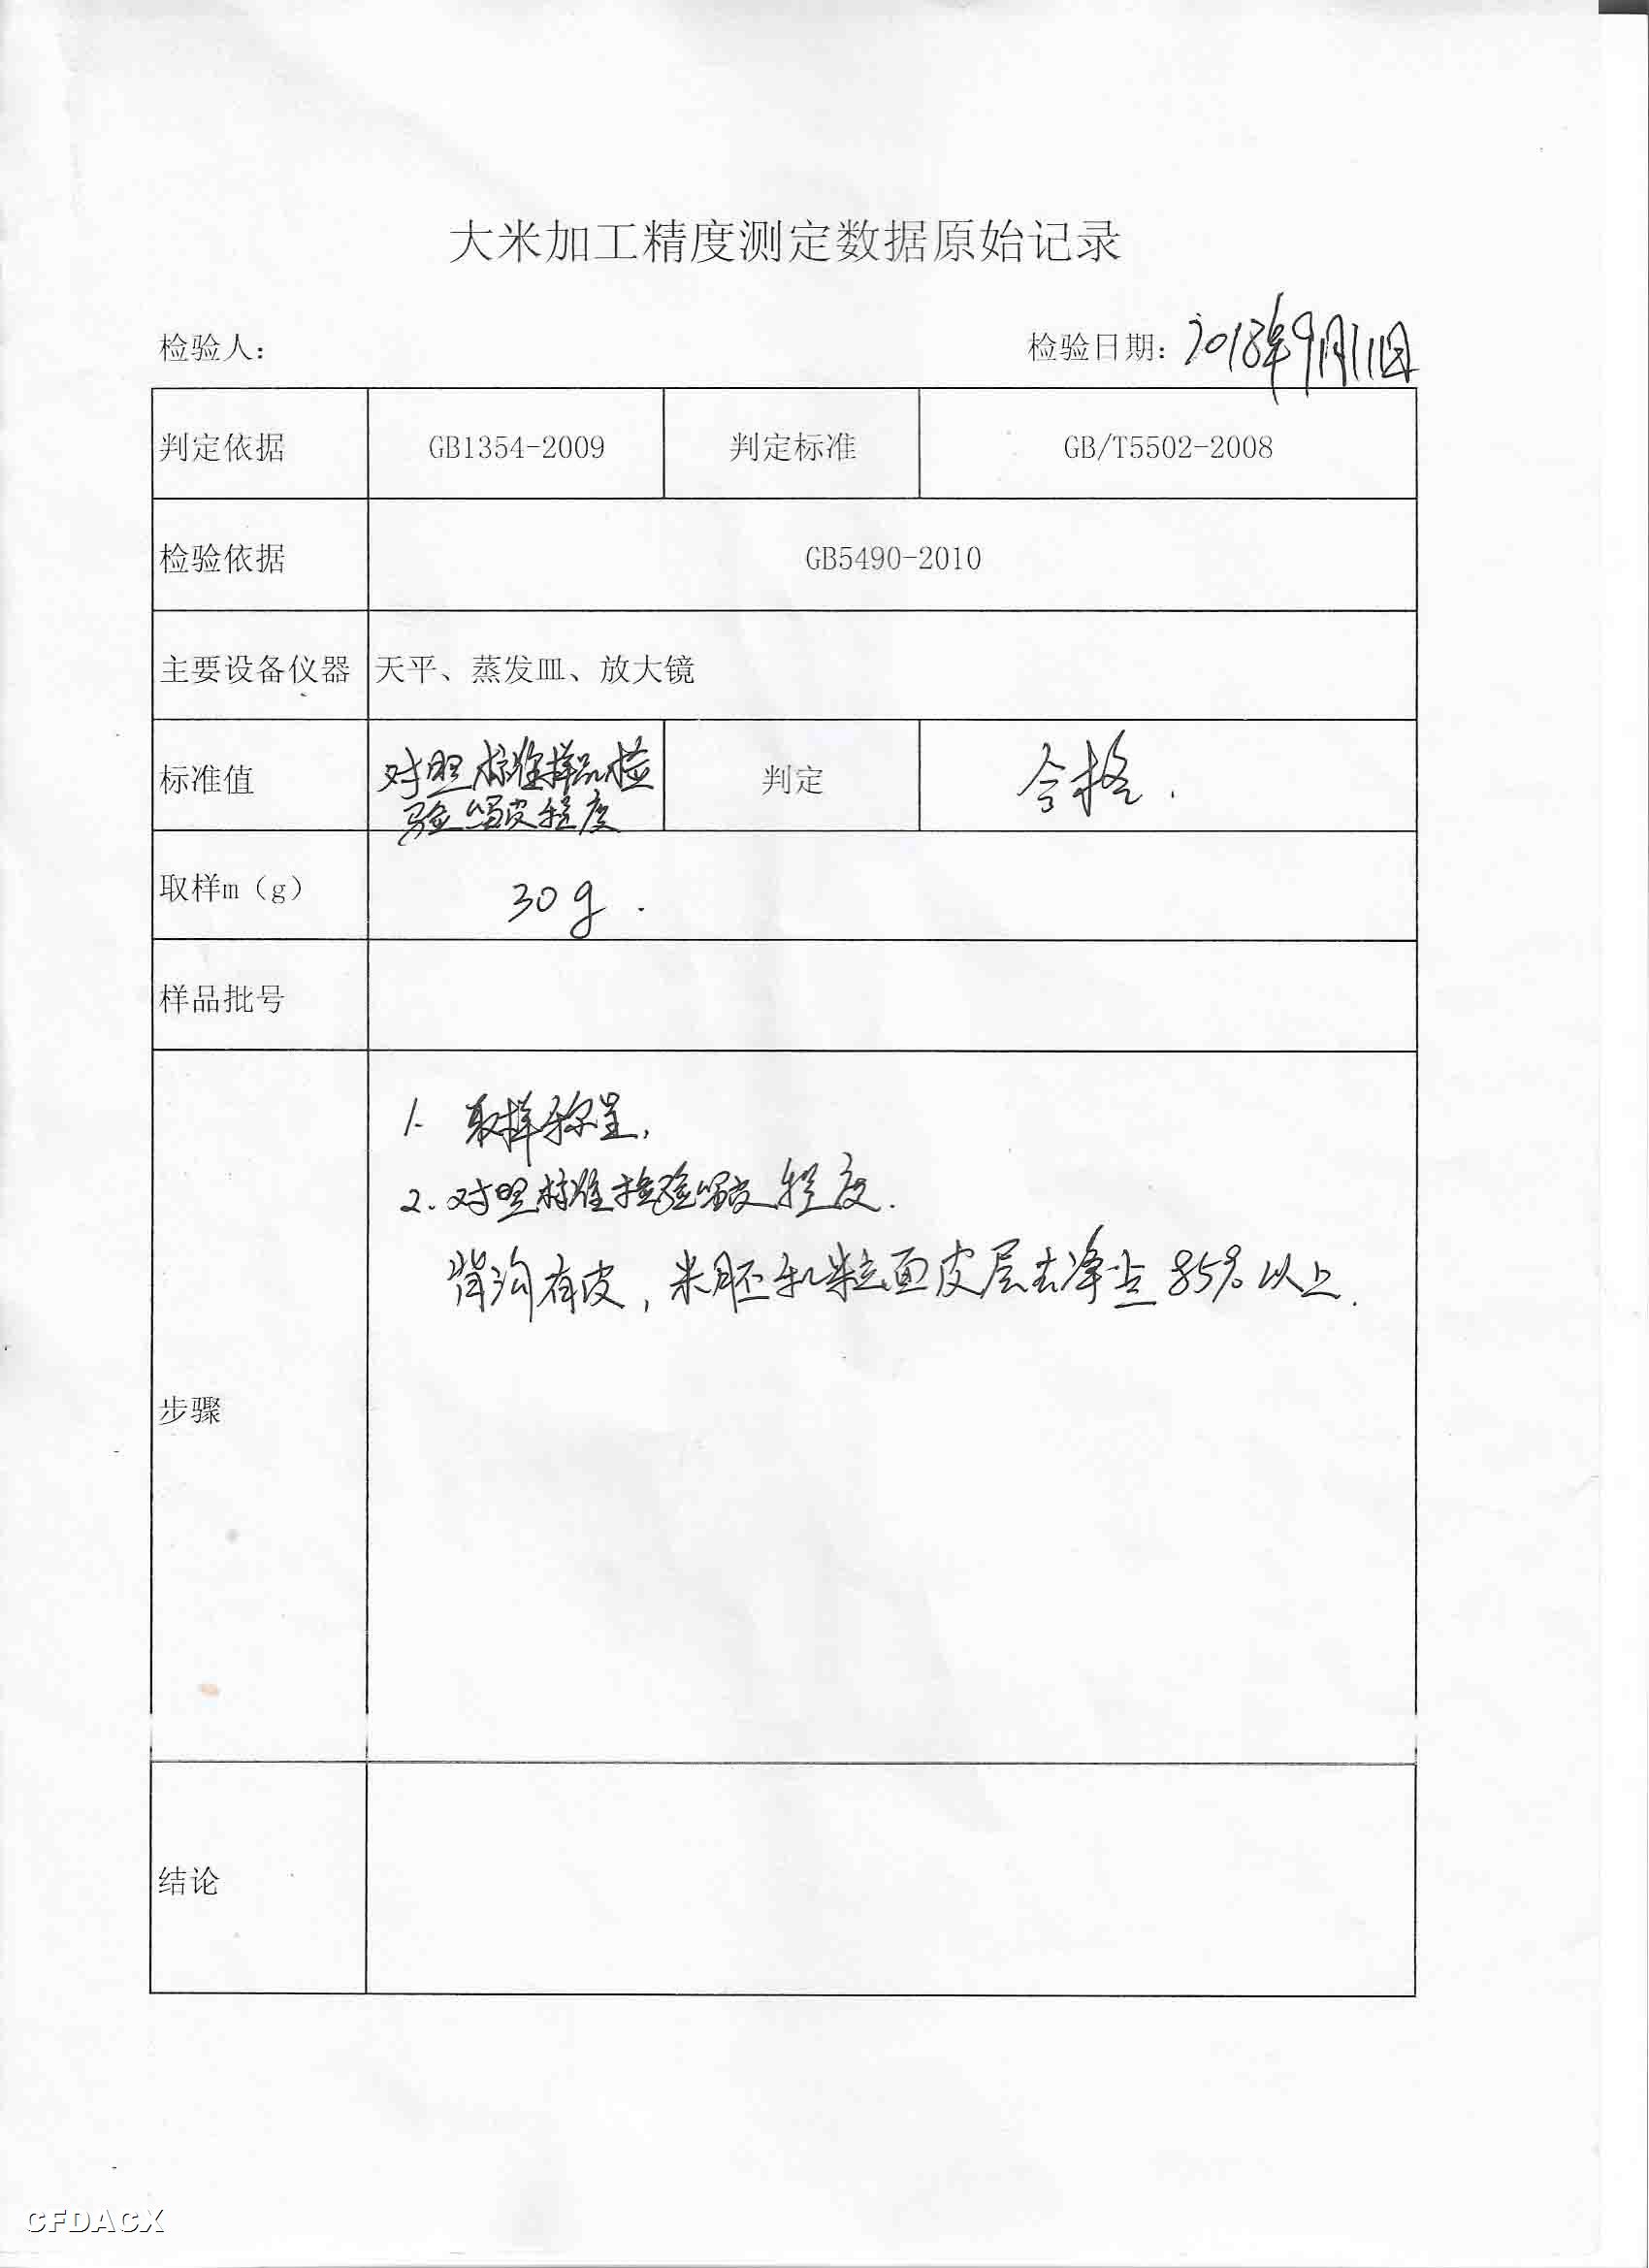 大米加工精度测定数据原始记录
检验人： 检验日期：2018年9月11日
判定依据 GB1354-2009 判定标准 GB/T5502-2008
检验依据 GB5490-2010
主要设备仪器 天平、蒸发皿、放大镜
标准值 对照标准样品检
验留皮程度 判定 合格.
取样m（g） 30g.
样品批号
1. 取样称量,
2. 对照标准检验留皮程度.
背沟有皮, 米胚和粒面皮层去净占85%以上.
步骤
结论
CFDACX